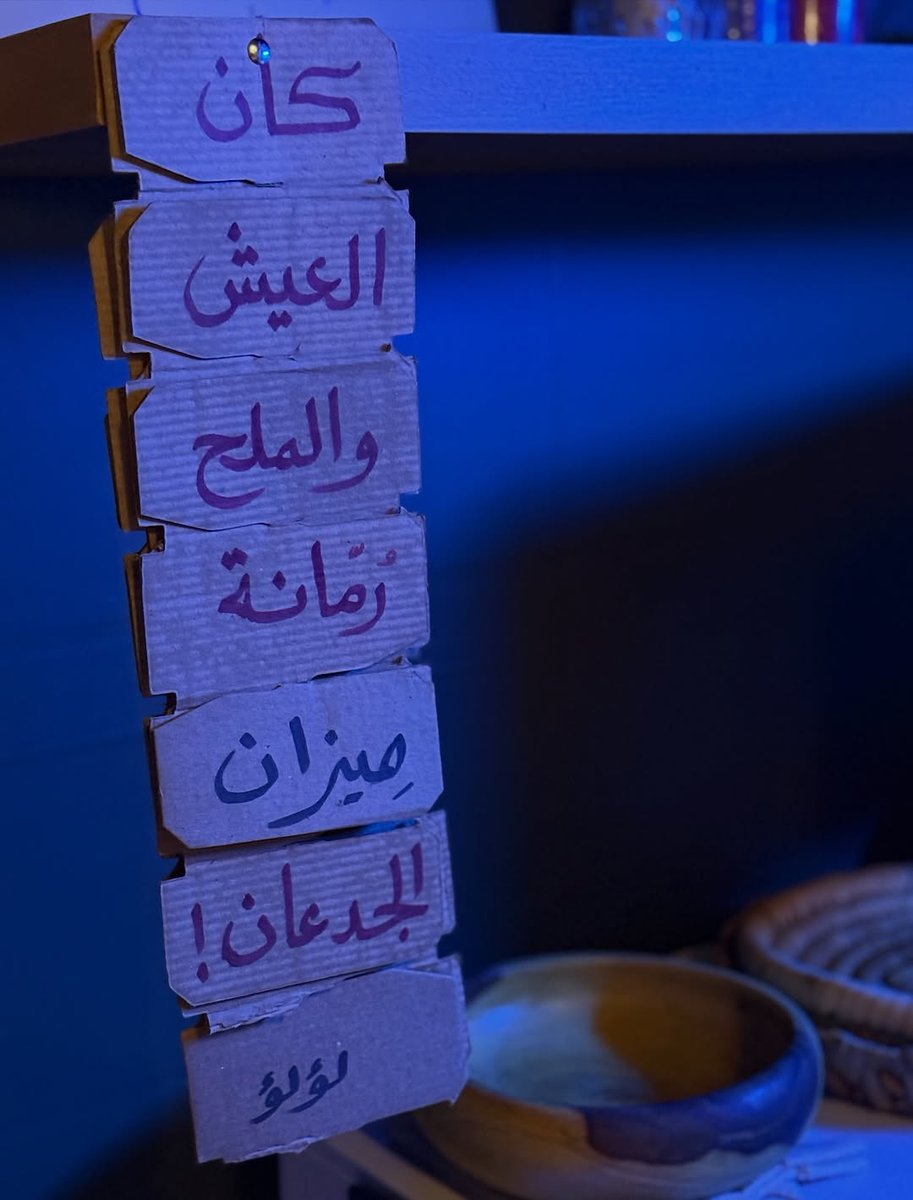 كان
العيش
والملح
رُمّانة
مِيزان
الجدعان!
لؤلؤ